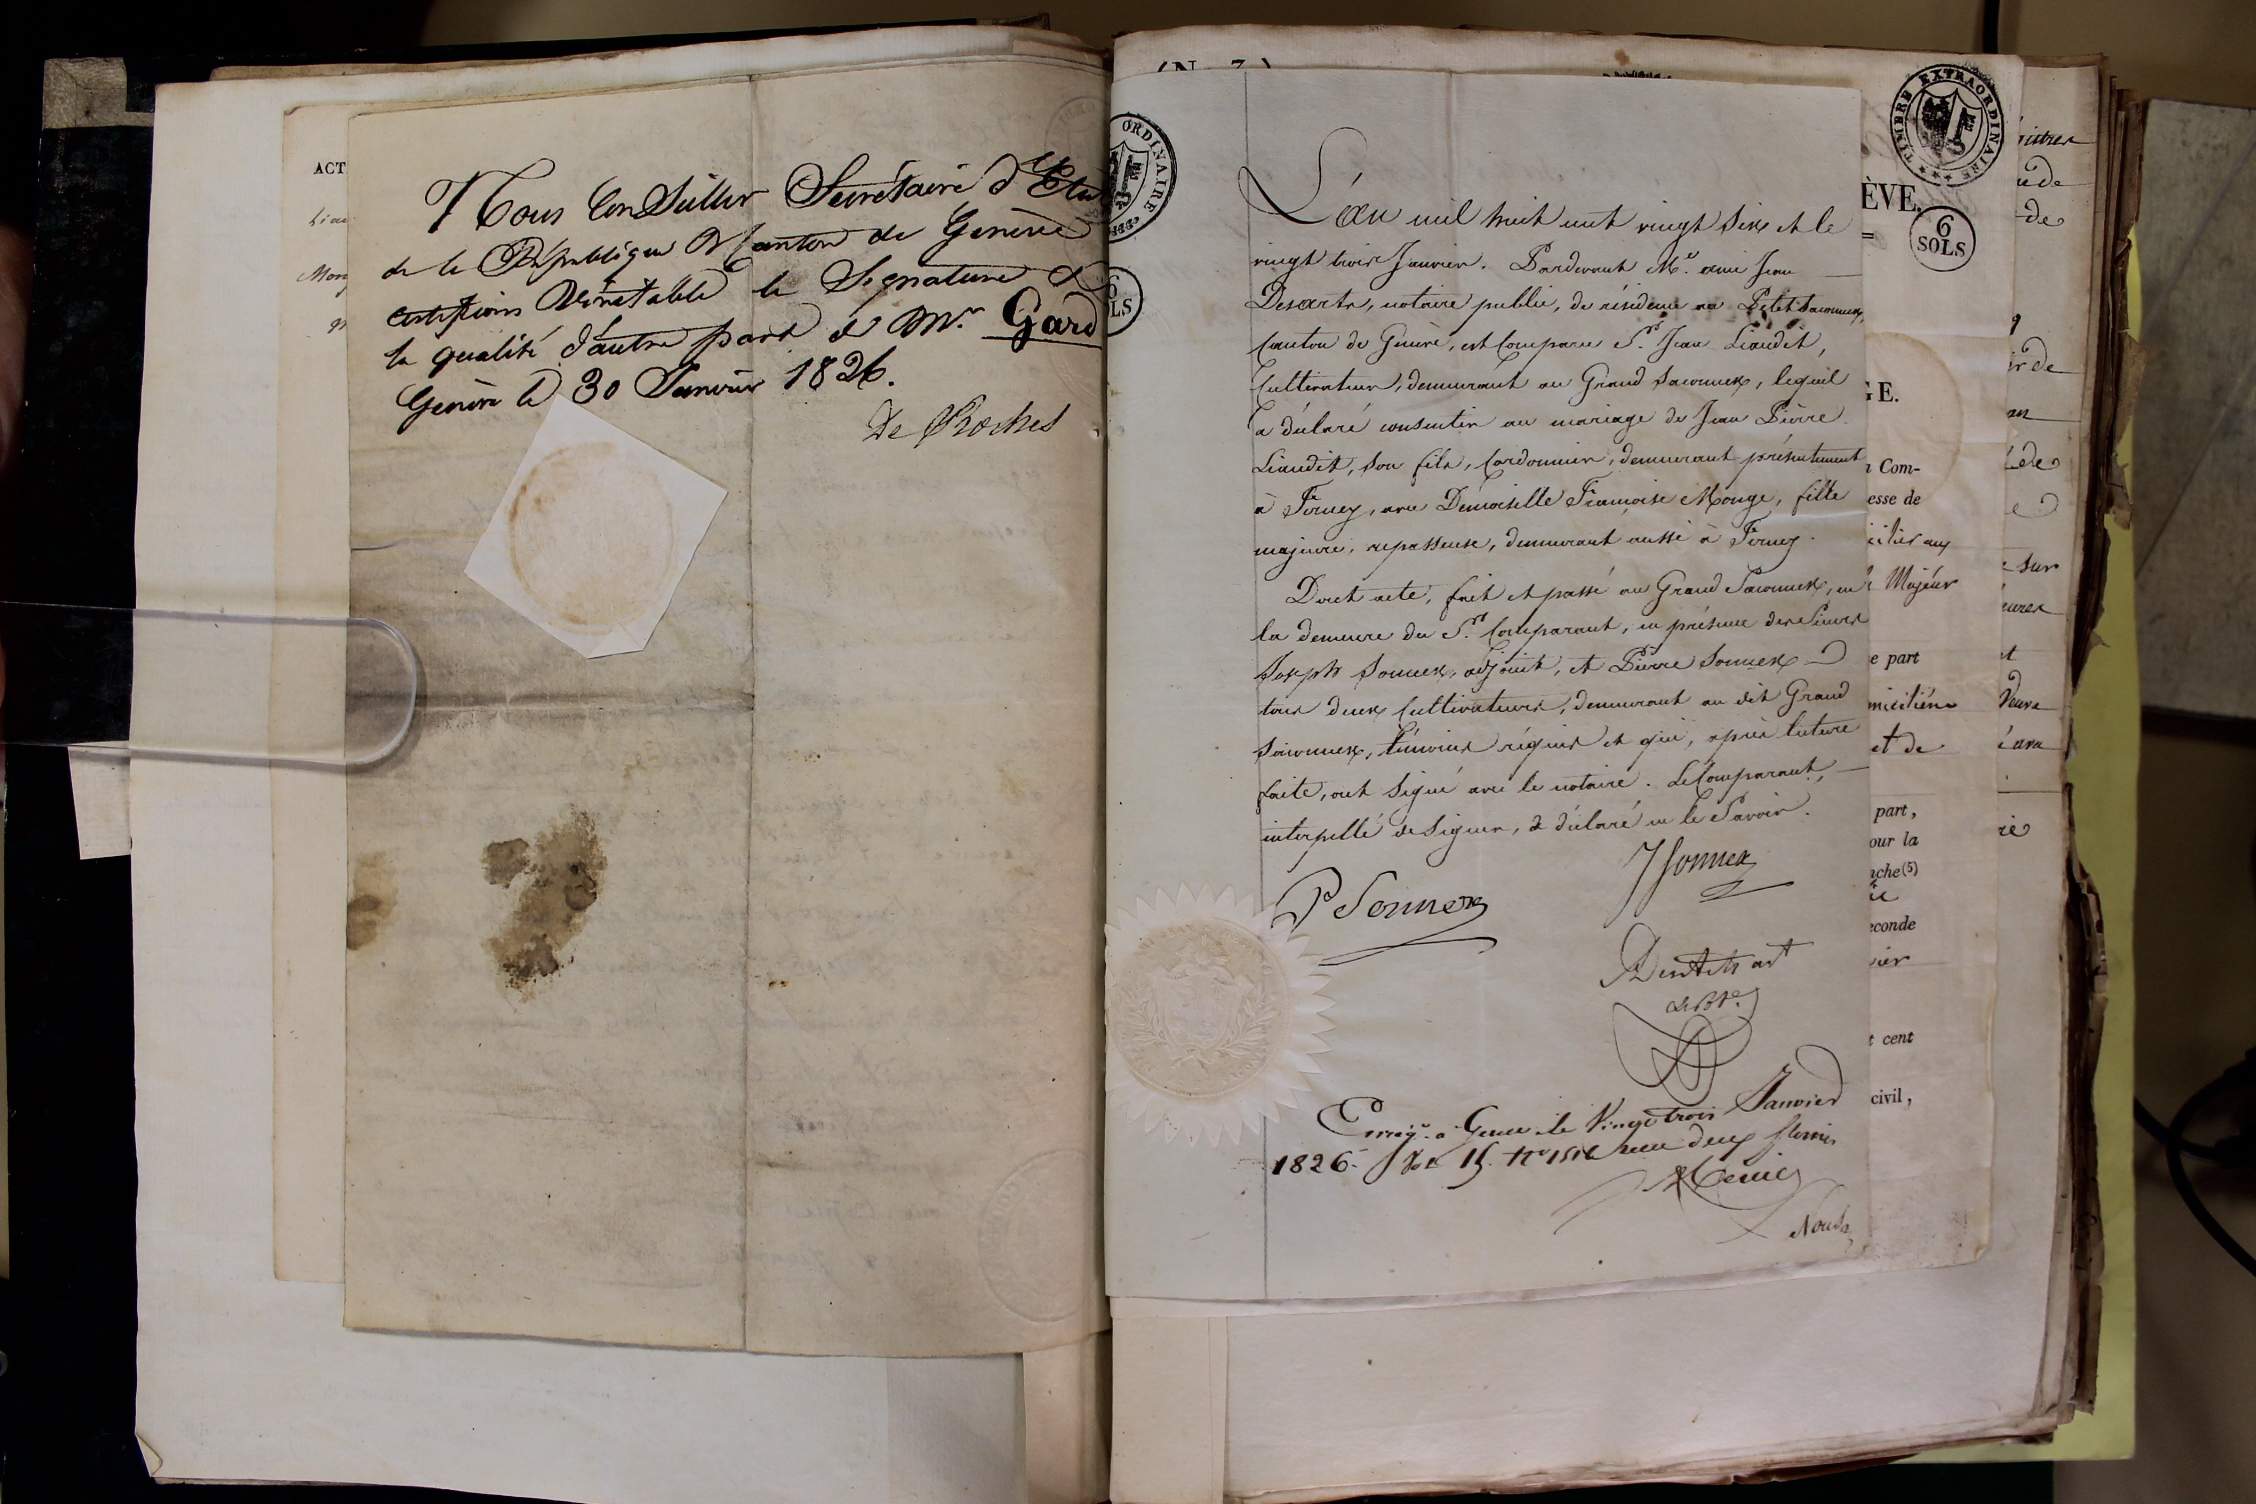 ACT
Nous Conseiller Secrétaire d'Etat
de la République & Canton de Genève
certifions Véritable la Signature &
la qualité d'autre part de Mr. Gard
Genève le 30 Janvier 1826.
De Roches
ORDINAIRE
L'an mil huit cent vingt six et le
vingt trois Janvier. Pardevant Me. Ami Jean
Desarts, notaire public, de résidence au Petit Saconnex,
Canton de Genève, est Comparu Sr. Jean Liaudet,
Cultivateur, demeurant au Grand Saconnex, lequel
a déclaré consentir au mariage de Jean Pierre
Liaudet, son fils, Cordonnier, demeurant présentement
à Ferney, avec Demoiselle Françoise Monge, fille
majeure, repasseuse, demeurant aussi à Ferney.
Dont acte, fait et passé au Grand Saconnex, en
la demeure du Sr. Comparant, en présence des Sieurs
Joseph Sonnex, adjoint, et Pierre Sonnex
tous deux Cultivateurs, demeurant au dit Grand
Saconnex, témoins requis et qui, après lecture
faite, ont signé avec le notaire. Le Comparant,
interpellé de signer, a déclaré ne le Savoir.
J Sonnex
P Sonnex
Enregé. à Genève le Vingt trois Janvier
1826. Vol 15. reçu deux florins
TIMBRE EXTRAORDINAIRE
6
SOLS
ÈVE.
GE.
n Com-
esse de
Majeur
e part
et de
part,
our la
nche (5)
econde
t cent
civil,